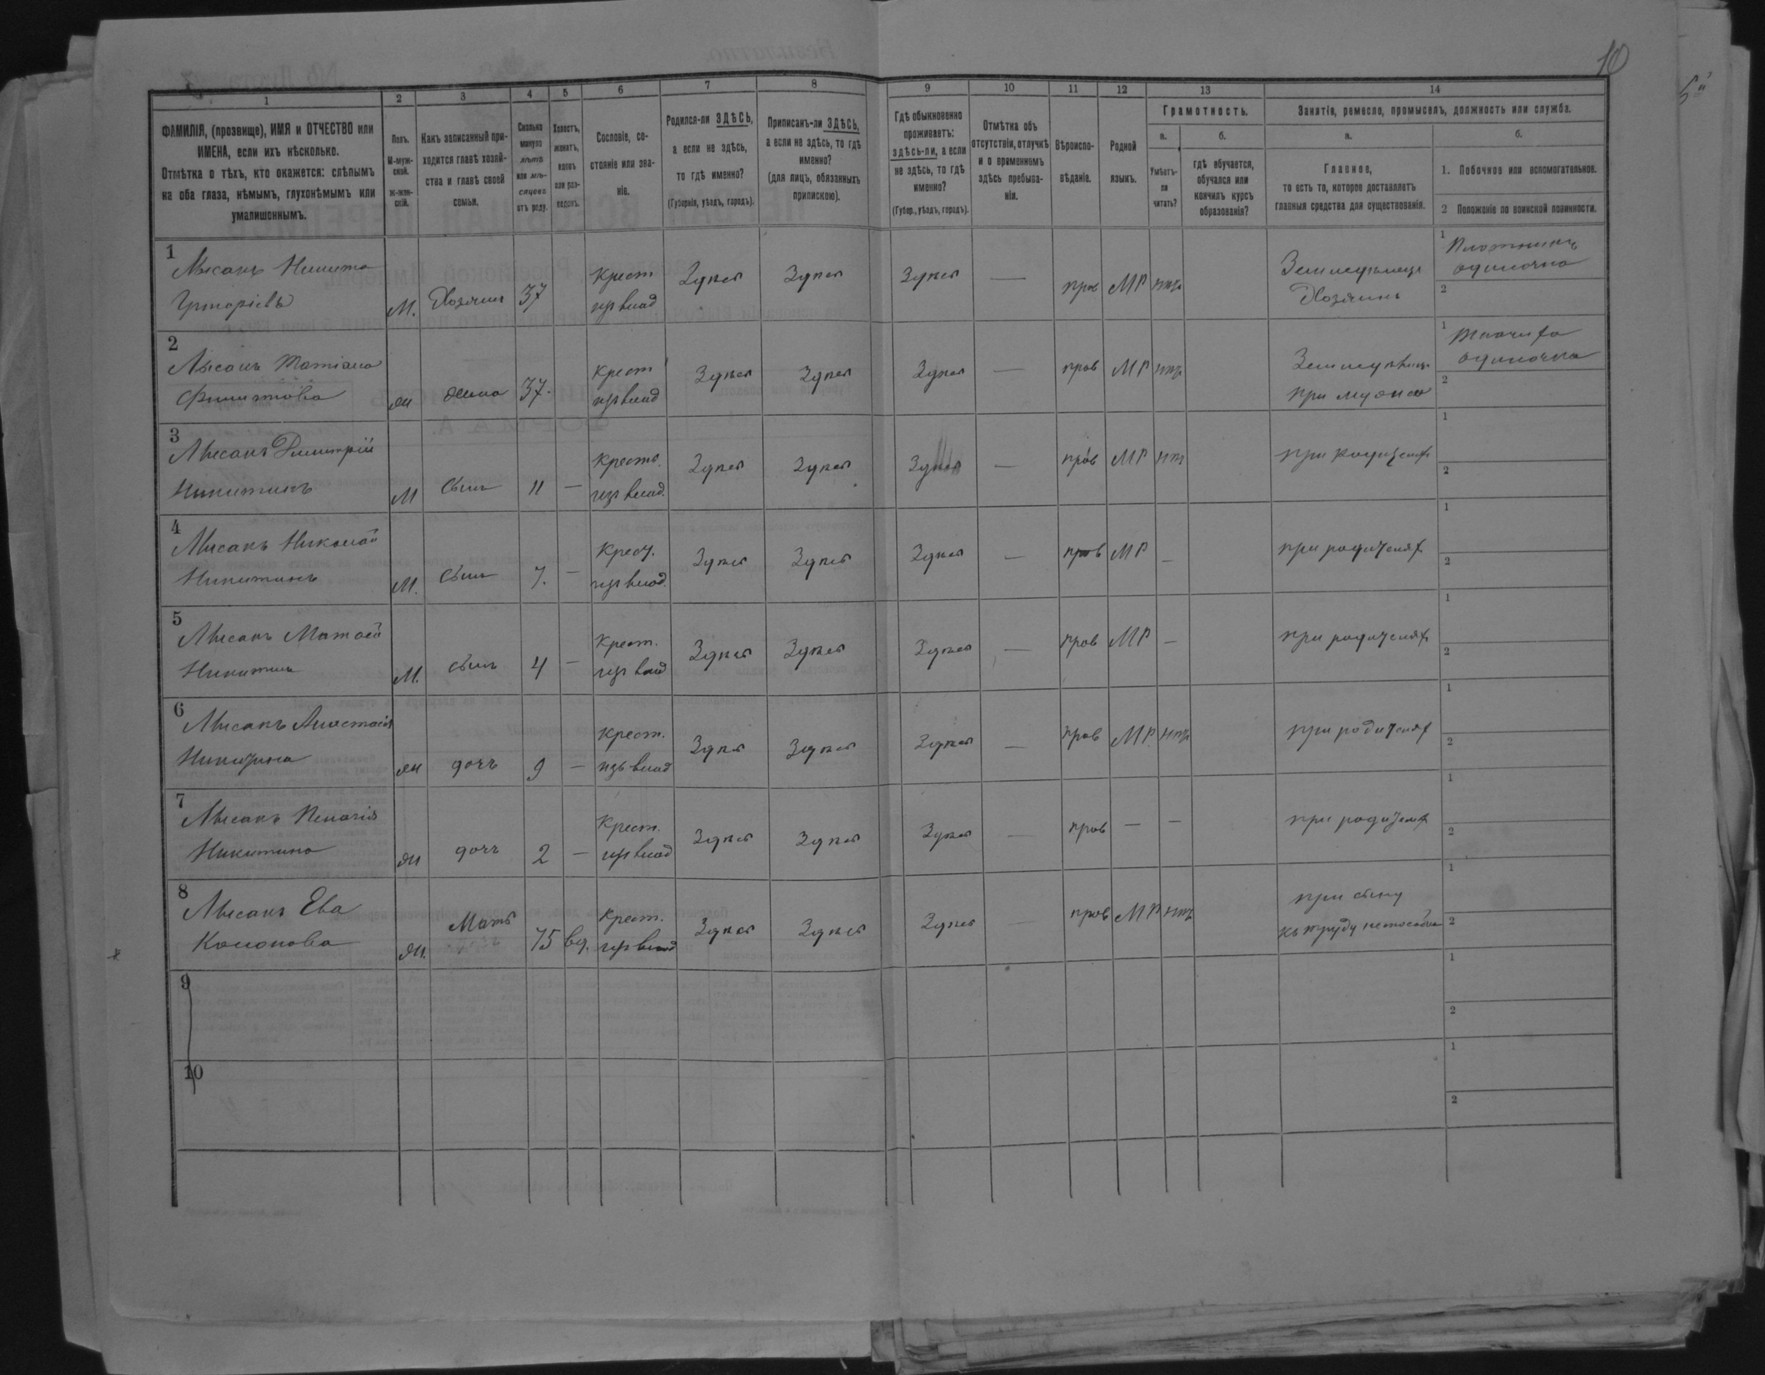 10
1 2 3 4 5 6 7 8 9 10 11 12 13 14
ФАМИЛІЯ, (прозвище), ИМЯ и ОТЧЕСТВО или
ИМЕНА, если ихъ нѣсколько.
Отмѣтка о тѣхъ, кто окажется: слѣпымъ
на оба глаза, нѣмымъ, глухонѣмымъ или
умалишеннымъ.
Полъ.
М-муж-
ской.
Ж-жен-
скій.
Какъ записанный при-
ходится главѣ хозяй-
ства и главѣ своей
семьи.
Сколько
минуло
лѣтъ
или мѣ-
сяцевъ
отъ роду.
Холостъ,
женатъ,
вдовъ
или раз-
веденъ.
Сословіе, со-
стояніе или зва-
ніе.
Родился-ли ЗДѢСЬ,
а если не здѣсь,
то гдѣ именно?
(Губернія, уѣздъ, городъ).
Приписанъ-ли ЗДѢСЬ,
а если не здѣсь, то гдѣ
именно?
(для лицъ, обязанныхъ
припискою).
Гдѣ обыкновенно
проживаетъ:
здѣсь-ли, а если
не здѣсь, то гдѣ
именно?
(Губер., уѣздъ, городъ).
Отмѣтка объ
отсутствіи, отлучкѣ
и о временномъ
здѣсь пребыва-
ніи.
Вѣроиспо-
вѣданіе.
Родной
языкъ.
Грамотность.
а.
Умѣетъ-
ли
читать?
б.
гдѣ обучается,
обучался или
кончилъ курсъ
образованія?
Занятія, ремесло, промыселъ, должность или служба.
а.
Главное,
то есть то, которое доставляетъ
главныя средства для существованія.
б.
1. Побочное или вспомогательное.
2 Положеніе по воинской повинности.
1 Лысакъ Никита
Григорієвъ М. Хозяинъ 37 Крест. изъ влад Здѣсь Здѣсь Здѣсь — прав МР нѣтъ Земледѣлецъ Хозяинъ 1 Плотникъ одиночка 2
2 Лысакъ Татіана
Филипова Ж жена 37 Крест изъ влад Здѣсь Здѣсь Здѣсь — прав МР нѣтъ при мужѣ 1 Ткачиха одиночка 2
3 Лысакъ Димитрій
Никитинъ М сынъ 11 — Крест. изъ влад. Здѣсь Здѣсь Здѣсь — прав МР нѣтъ при родителях 1 2
4 Лысакъ Николай
Никитинъ М. сынъ 7. — Крест. изъ влад. Здѣсь Здѣсь Здѣсь — прав МР — при родителях 1 2
5 Лысакъ Матвѣй
Никитинъ М. сынъ 4 — Крест. изъ влад Здѣсь Здѣсь Здѣсь — прав МР — при родителях 1 2
6 Лысакъ Анастасія
Никитина Ж дочь 9 — Крест. изъ влад Здѣсь Здѣсь Здѣсь — прав МР нѣтъ при родителях 1 2
7 Лысакъ Пелагія
Никитина Ж дочь 2 — Крест. изъ влад Здѣсь Здѣсь Здѣсь — прав — — при родителях 1 2
8 Лысакъ Ева
Кононова Ж. Мать 75 вд. Крест. изъ влад Здѣсь Здѣсь Здѣсь — прав МР нѣтъ при сыну къ труду неспособна 1 2
9 1 2
10 1 2